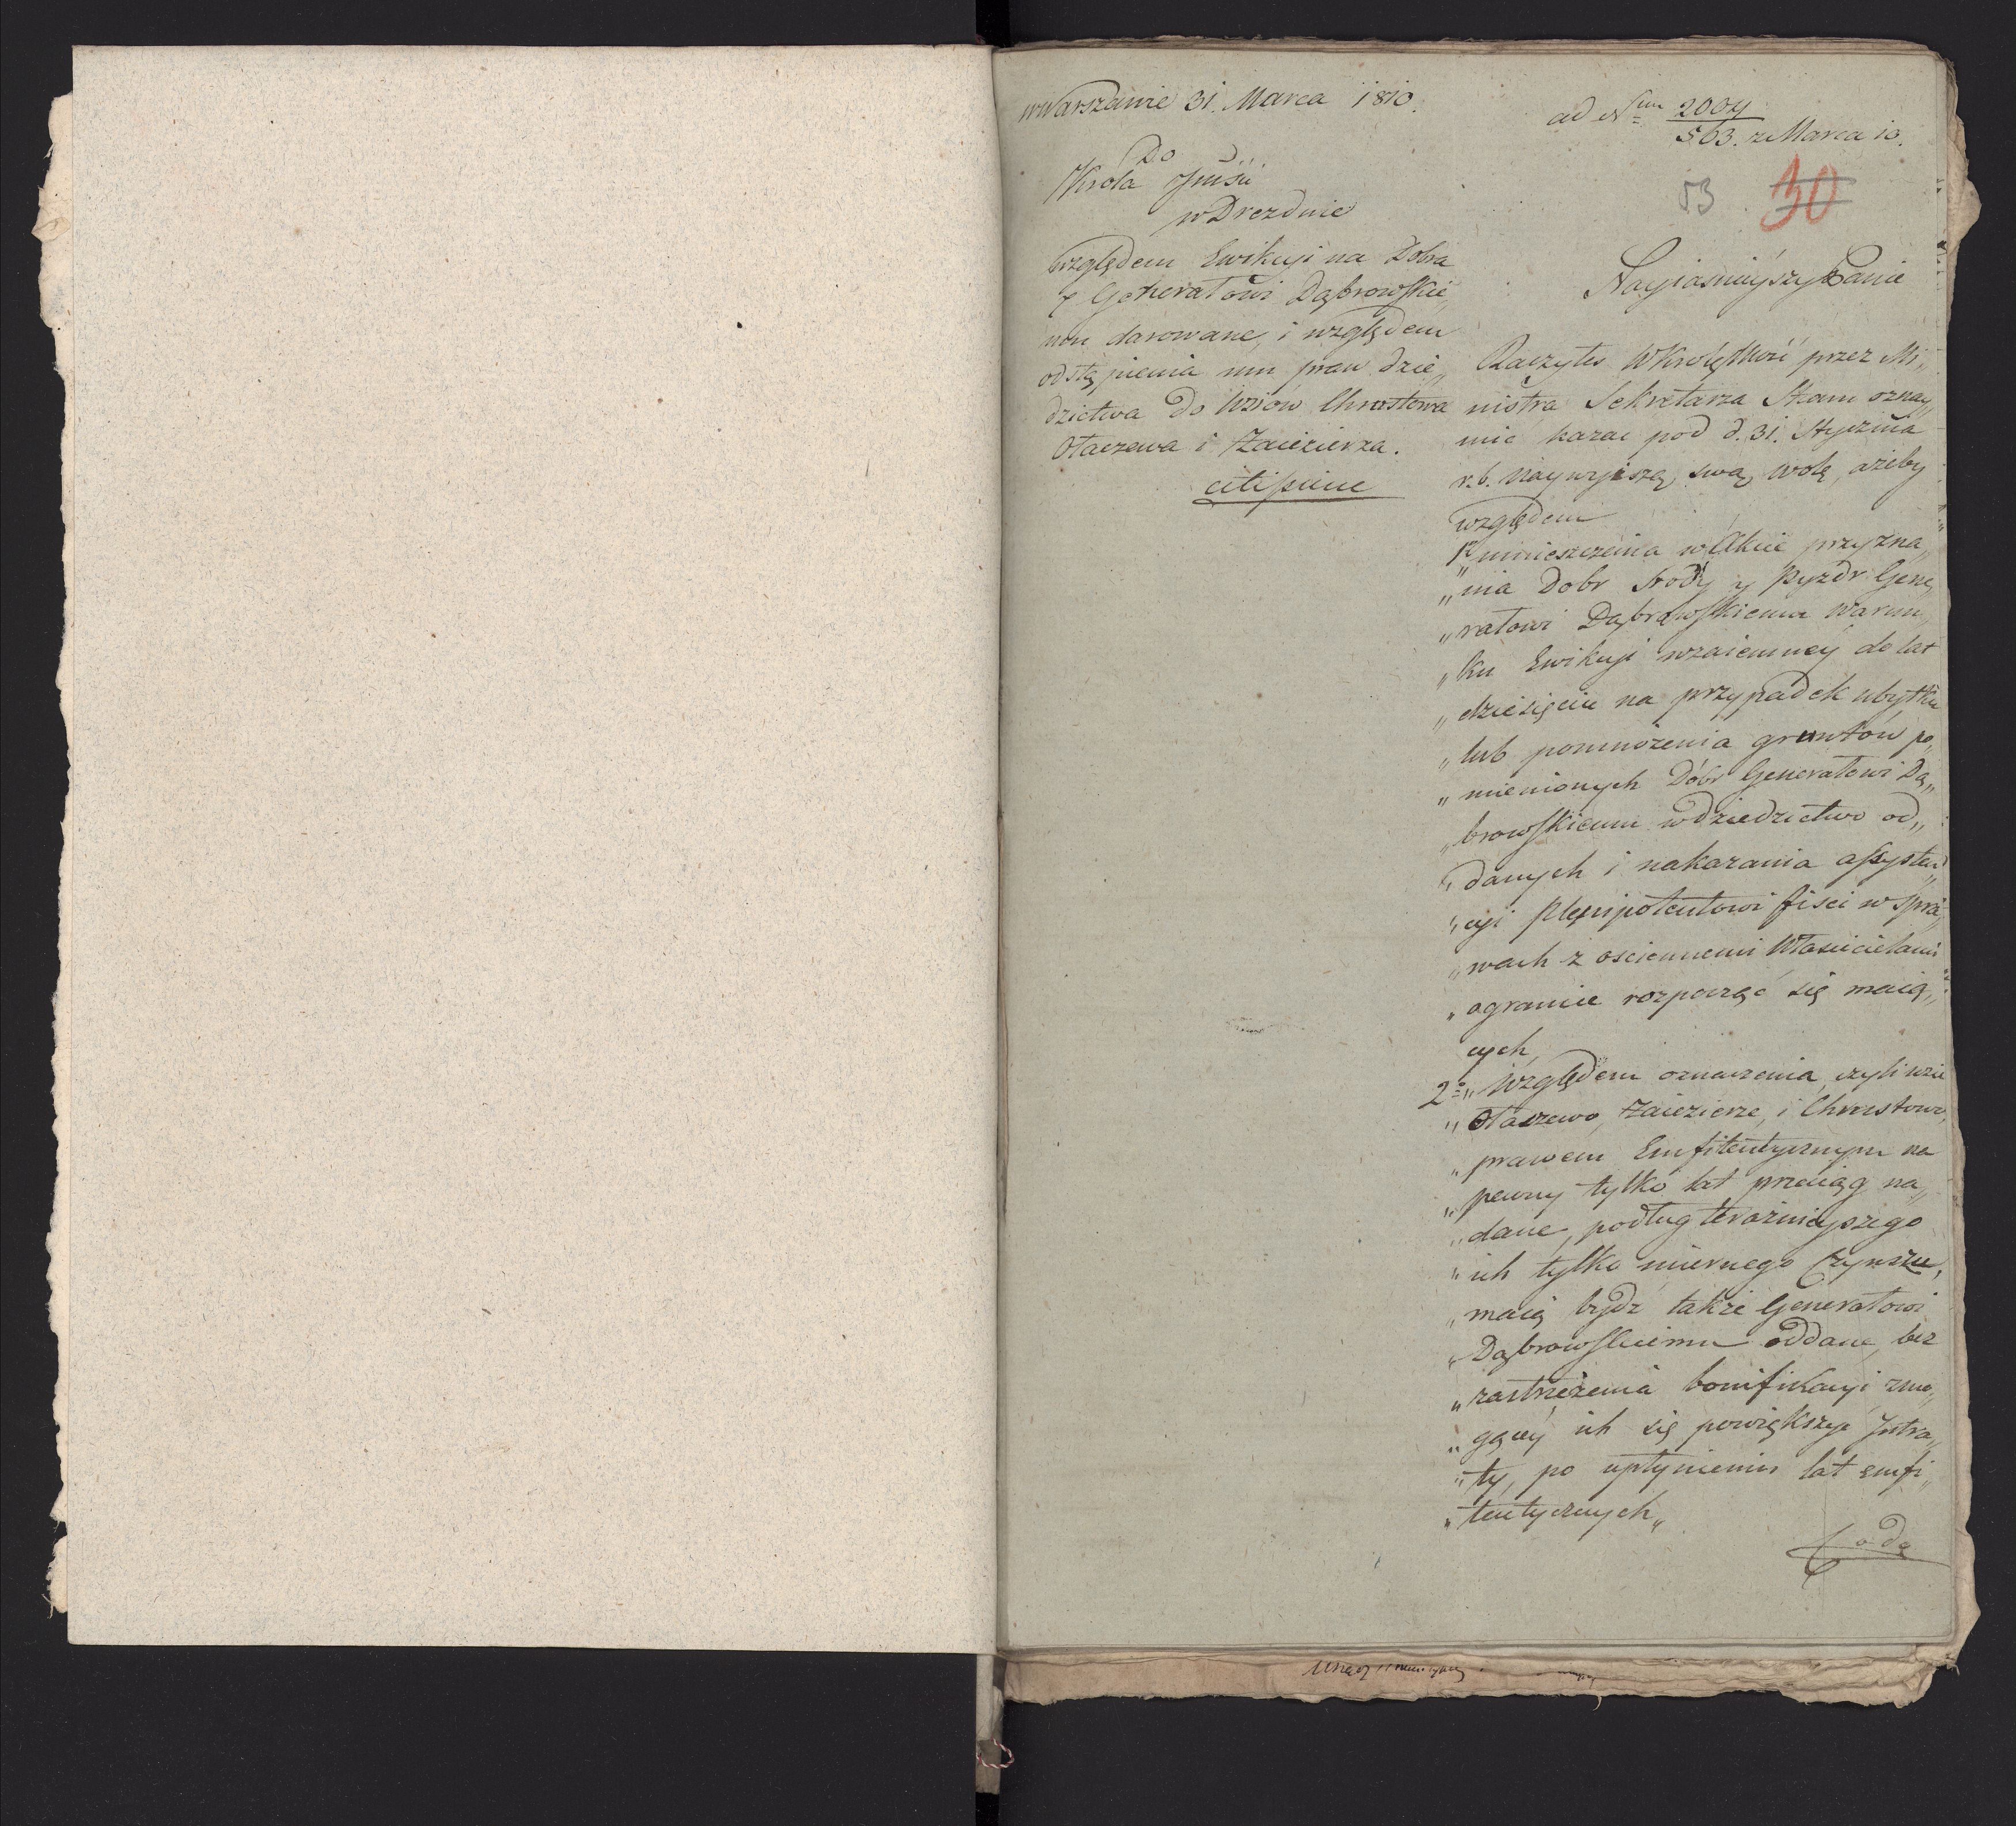 w Warszawie 31. Marca 1810.
ad Num 2004
563. z Marca 10.
53 30
Do
Króla Jmści
w Dreznie
względem Ewikcyi na Dobra
Generałowi Dąbrowskie„
mu darowane, i względem
odstąpienia mu praw dzie„
dzictwa do Wsiów Chrustowa
Otaczewa i Zaiezierza.
citissime
Nayiasnieyszy Panie
Raczyłes WKrólewMość przez Mi„
nistra Sekretarza Stanu oznay„
mić kazać pod d. 31. Stycznia
r. b. Naywyższą swą wolę, ażeby
względem
1o umieszczenia w Akcie przyzna„
„nia Dobr Srody y Pyzdr Gene„
„rałowi Dąbrowskiemu warun„
„ku Ewikcyi wzaiemney do lat
„dziesięciu na przypadek ubytku
„lub pomnożenia gruntów po„
„mienionych Dóbr Generałowi Dą„
„browskiemu w dziedzictwo od„
„danych i nakazania assysten„
„cyi Plenipotentowi fisci w spra„
„wach z osciennemi Własicielami
„o granice rozpocząć się maią„
cych,
2o „Względem oznaczenia, czyli wsie
„Otaszewo, Zaiezierze, i Chrustowo,
„prawem Emfiteutycznym na
„pewny tylko lat przeciąg na„
„dane, podług teraznieyszego
„ich tylko miernego Czynszu,
„maią bydź także Generałowi
„Dąbrowskiemu oddane, bez
„zastrzeżenia bonifikacyi zmo„
„gącey ich się powiększyć Intra„
„ty, po upłynieniu lat emfi„
„teutycznych„